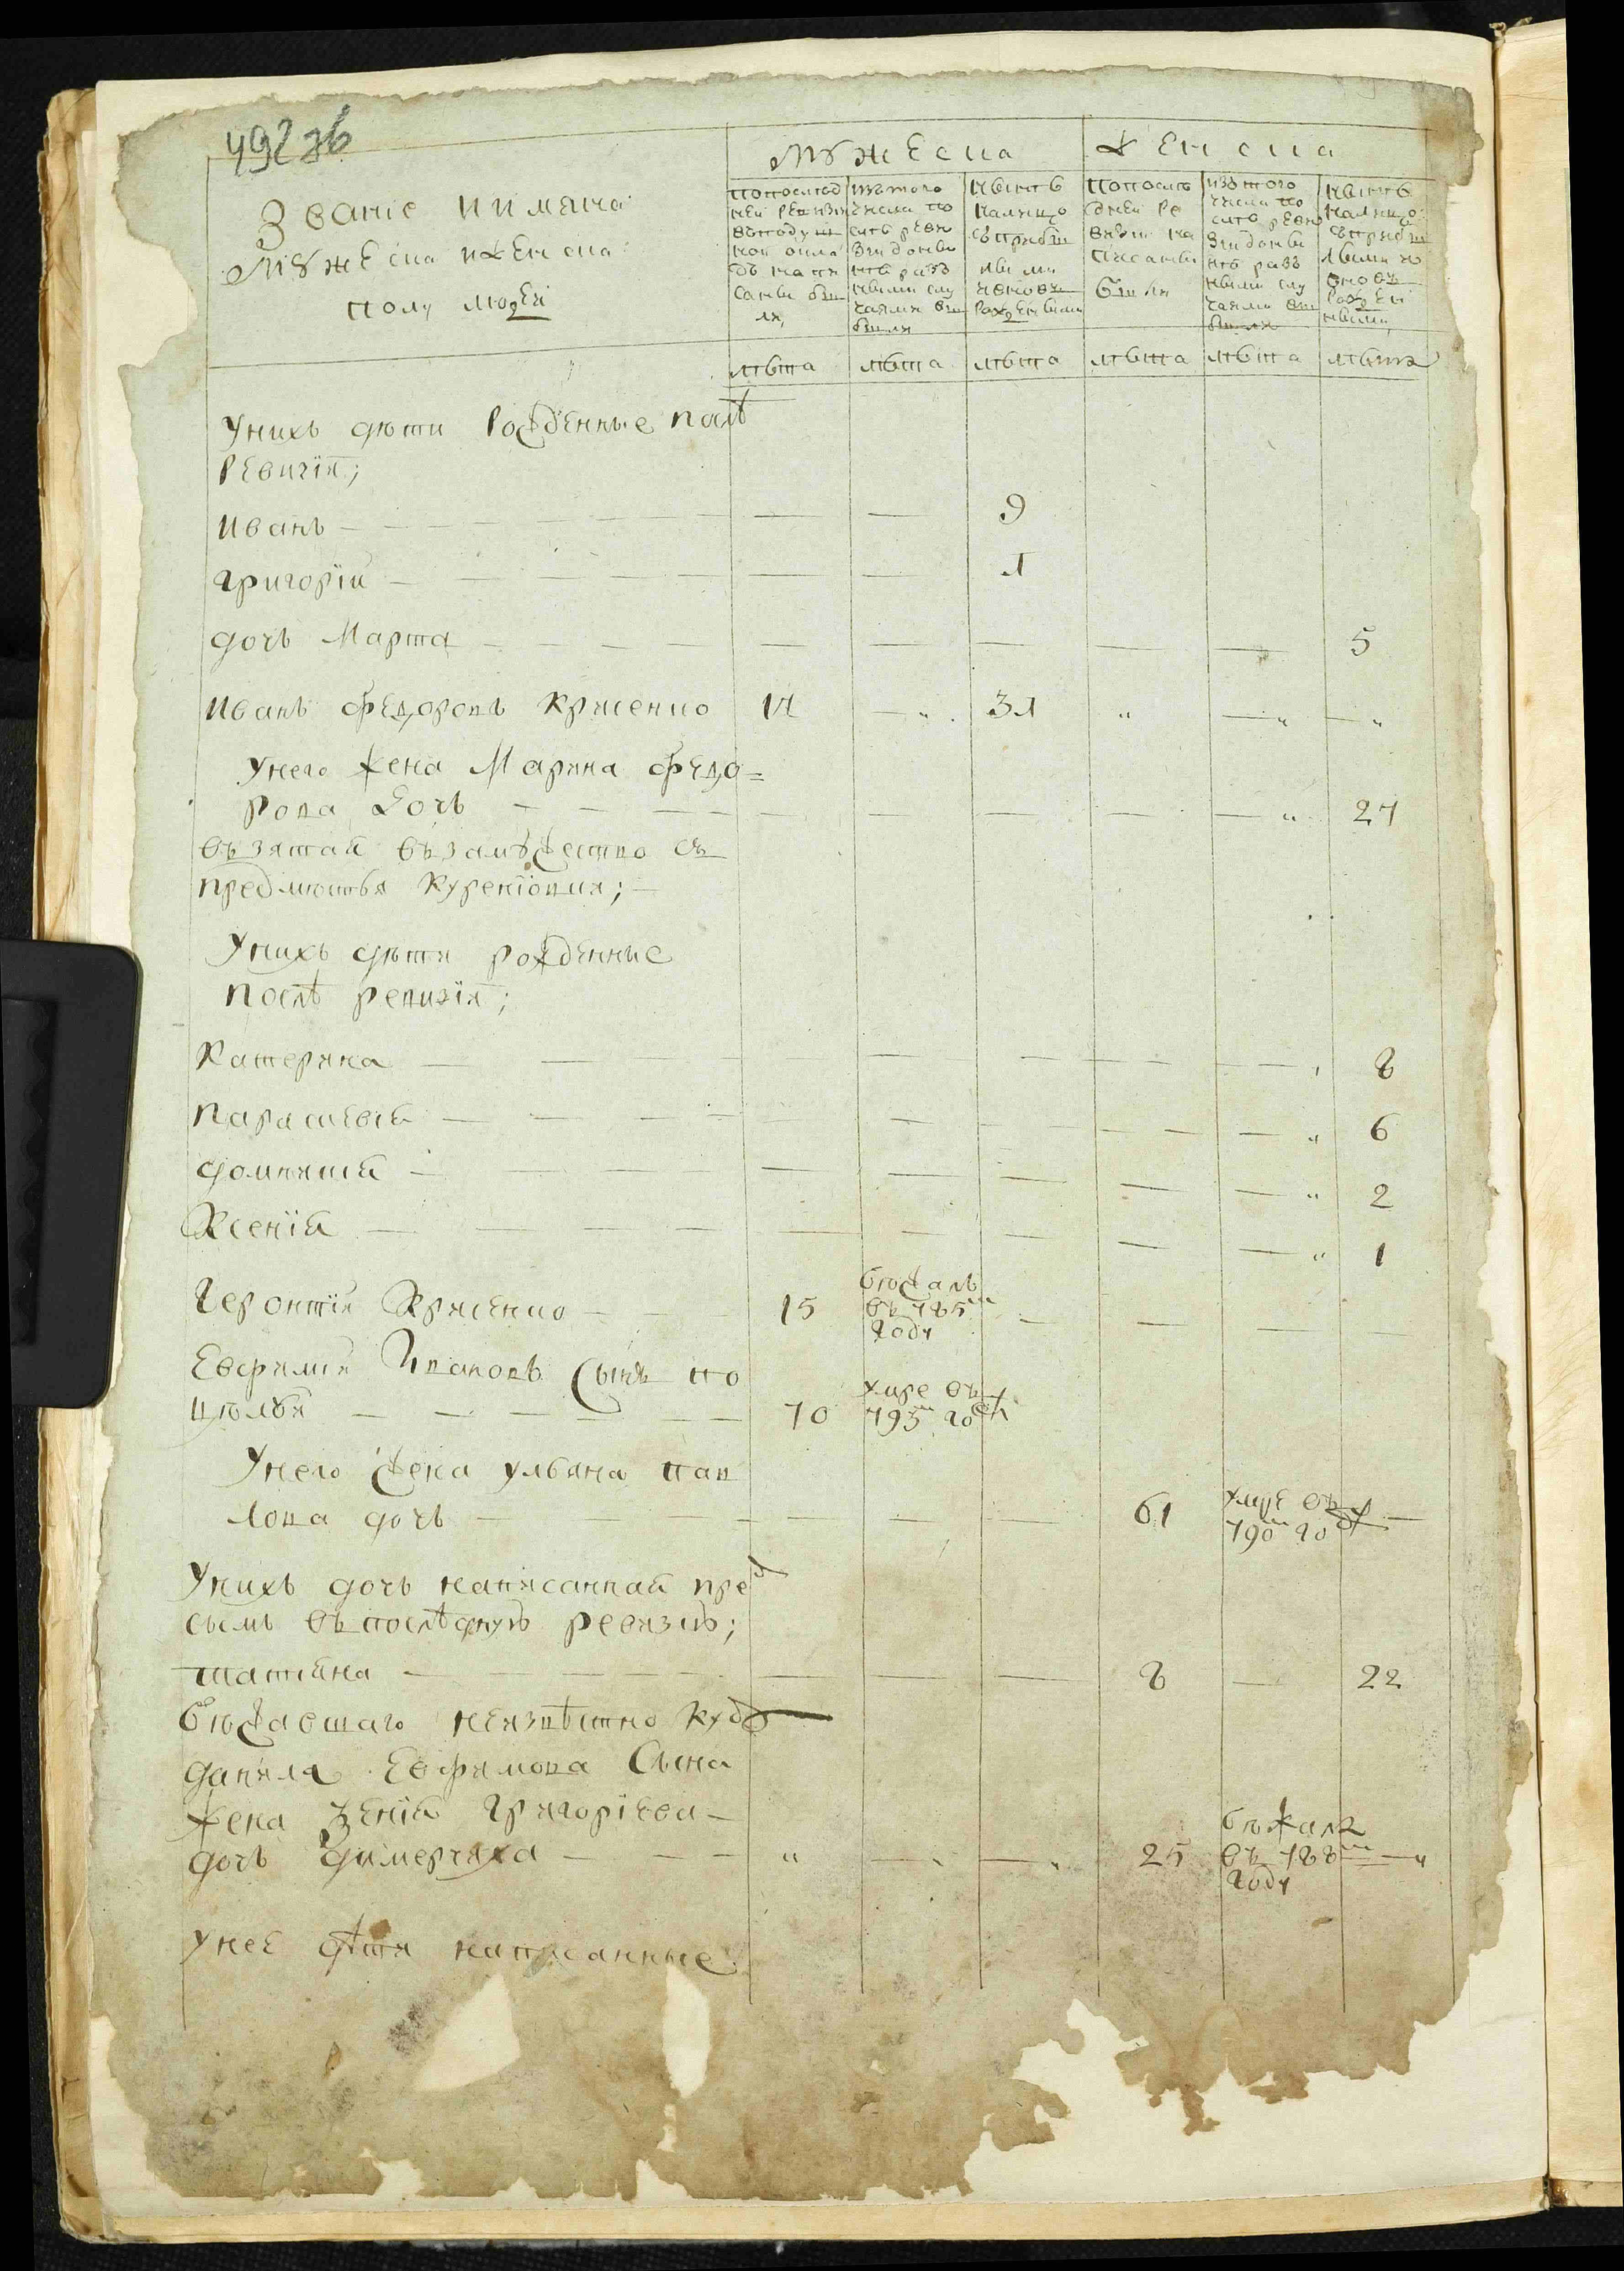 492 зв
Званіе иимяна
Мȣжеска иженска
полу людей
Мȣжеска
Женска
попослед
ней ревизiи
въподуш
ной окла
дъ напи
саны бы
ли,
изътого
числа по
слѣ реви
зіи донынѣ разъ
ными слу
чаями вы
были
нынѣ
налицо
съприбы
лыми
ивновь
рожденными
попослѣ
дней ре
визіи на
писаны
были
изътого
числа по
слѣ реви
зіи донынѣ разъ
ными слу
чаями вы
были
нынѣ
налицо
съприбы
лыми и
вновь
рожден
ными
лѣта лѣта лѣта лѣта лѣта лѣта
Унихъ дѣти рожденные послѣ
ревизїи;
Иванъ 9
Григорїй 1
дочь Марта 5
Иванъ Федоровъ Крисенко 17 31
Унего жена Марина Федо=
рова дочь 27
взятая възамȣжество съ
предместья Куренїовки;
Унихъ дѣти рожденные
послѣ ревизїи;
Катерина 8
Параскевїя 6
домникїя 2
Ксенїя 1
Геронтїй Крисенко 15 бѣжалъ въ 785м годȣ
Евфимїй Ивановъ сынъ по
цѣлȣй 70 умре въ 795м годȣ
Унего жена ульяна пав
лова дочь 61 умре въ 790м годȣ
Унихъ дочь написанная пред
сымъ въпослѣднуюю ревизїю;
татїяна 8 22
бѣжавшаго неизвѣстно куда
данила Евфимова сына
жена Зенїя Григорїева
дочь димерчиха 25 бѣжала въ 788м годȣ
Унеё дѣти написанные